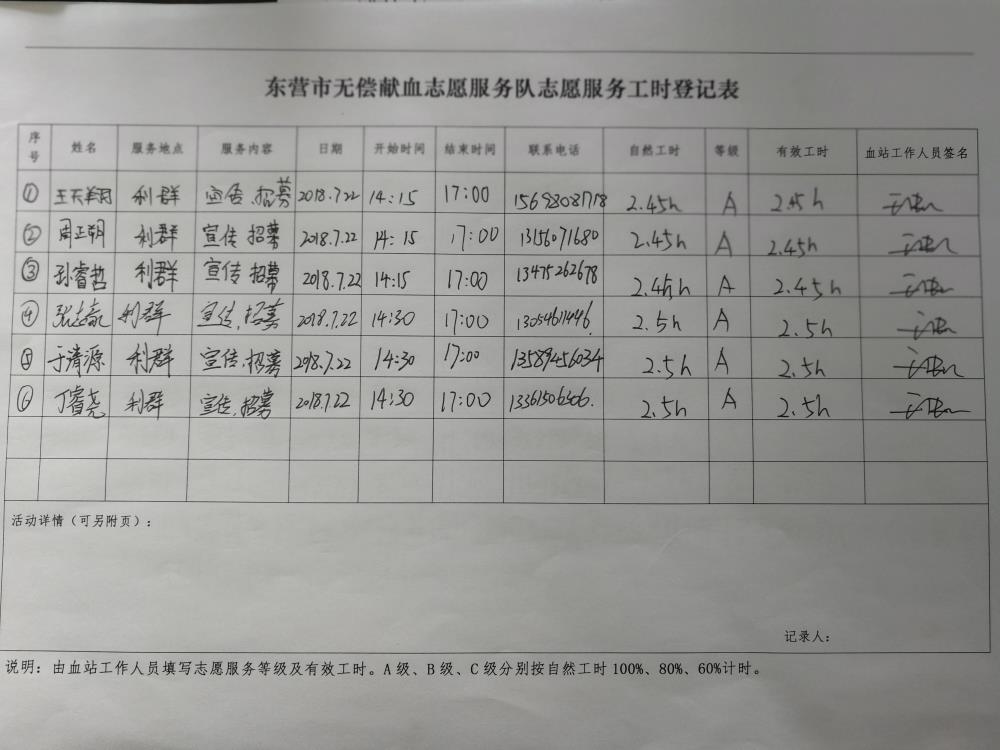 东营市无偿献血志愿服务队志愿服务工时登记表
序号 姓名 服务地点 服务内容 日期 开始时间 结束时间 联系电话 自然工时 等级 有效工时 血站工作人员签名
① 王天翔 利群 宣传、招募 2018.7.22 14:15 17:00 15698081718 2.45h A 2.45h
② 周正朝 利群 宣传 招募 2018.7.22 14:15 17:00 13156071680 2.45h A 2.45h
③ 孙睿哲 利群 宣传 招募 2018.7.22 14:15 17:00 13475262678 2.45h A 2.45h
④ 利群 宣传,招募 2018.7.22 14:30 17:00 13054611446 2.5h A 2.5h
⑤ 于清源 利群 宣传,招募 2018.7.22 14:30 17:00 13589456034 2.5h A 2.5h
⑥ 丁睿尧 利群 宣传,招募 2018.7.22 14:30 17:00 13361506306. 2.5h A 2.5h
活动详情(可另附页):
记录人:
说明:由血站工作人员填写志愿服务等级及有效工时。A级、B级、C级分别按自然工时100%、80%、60%计时。